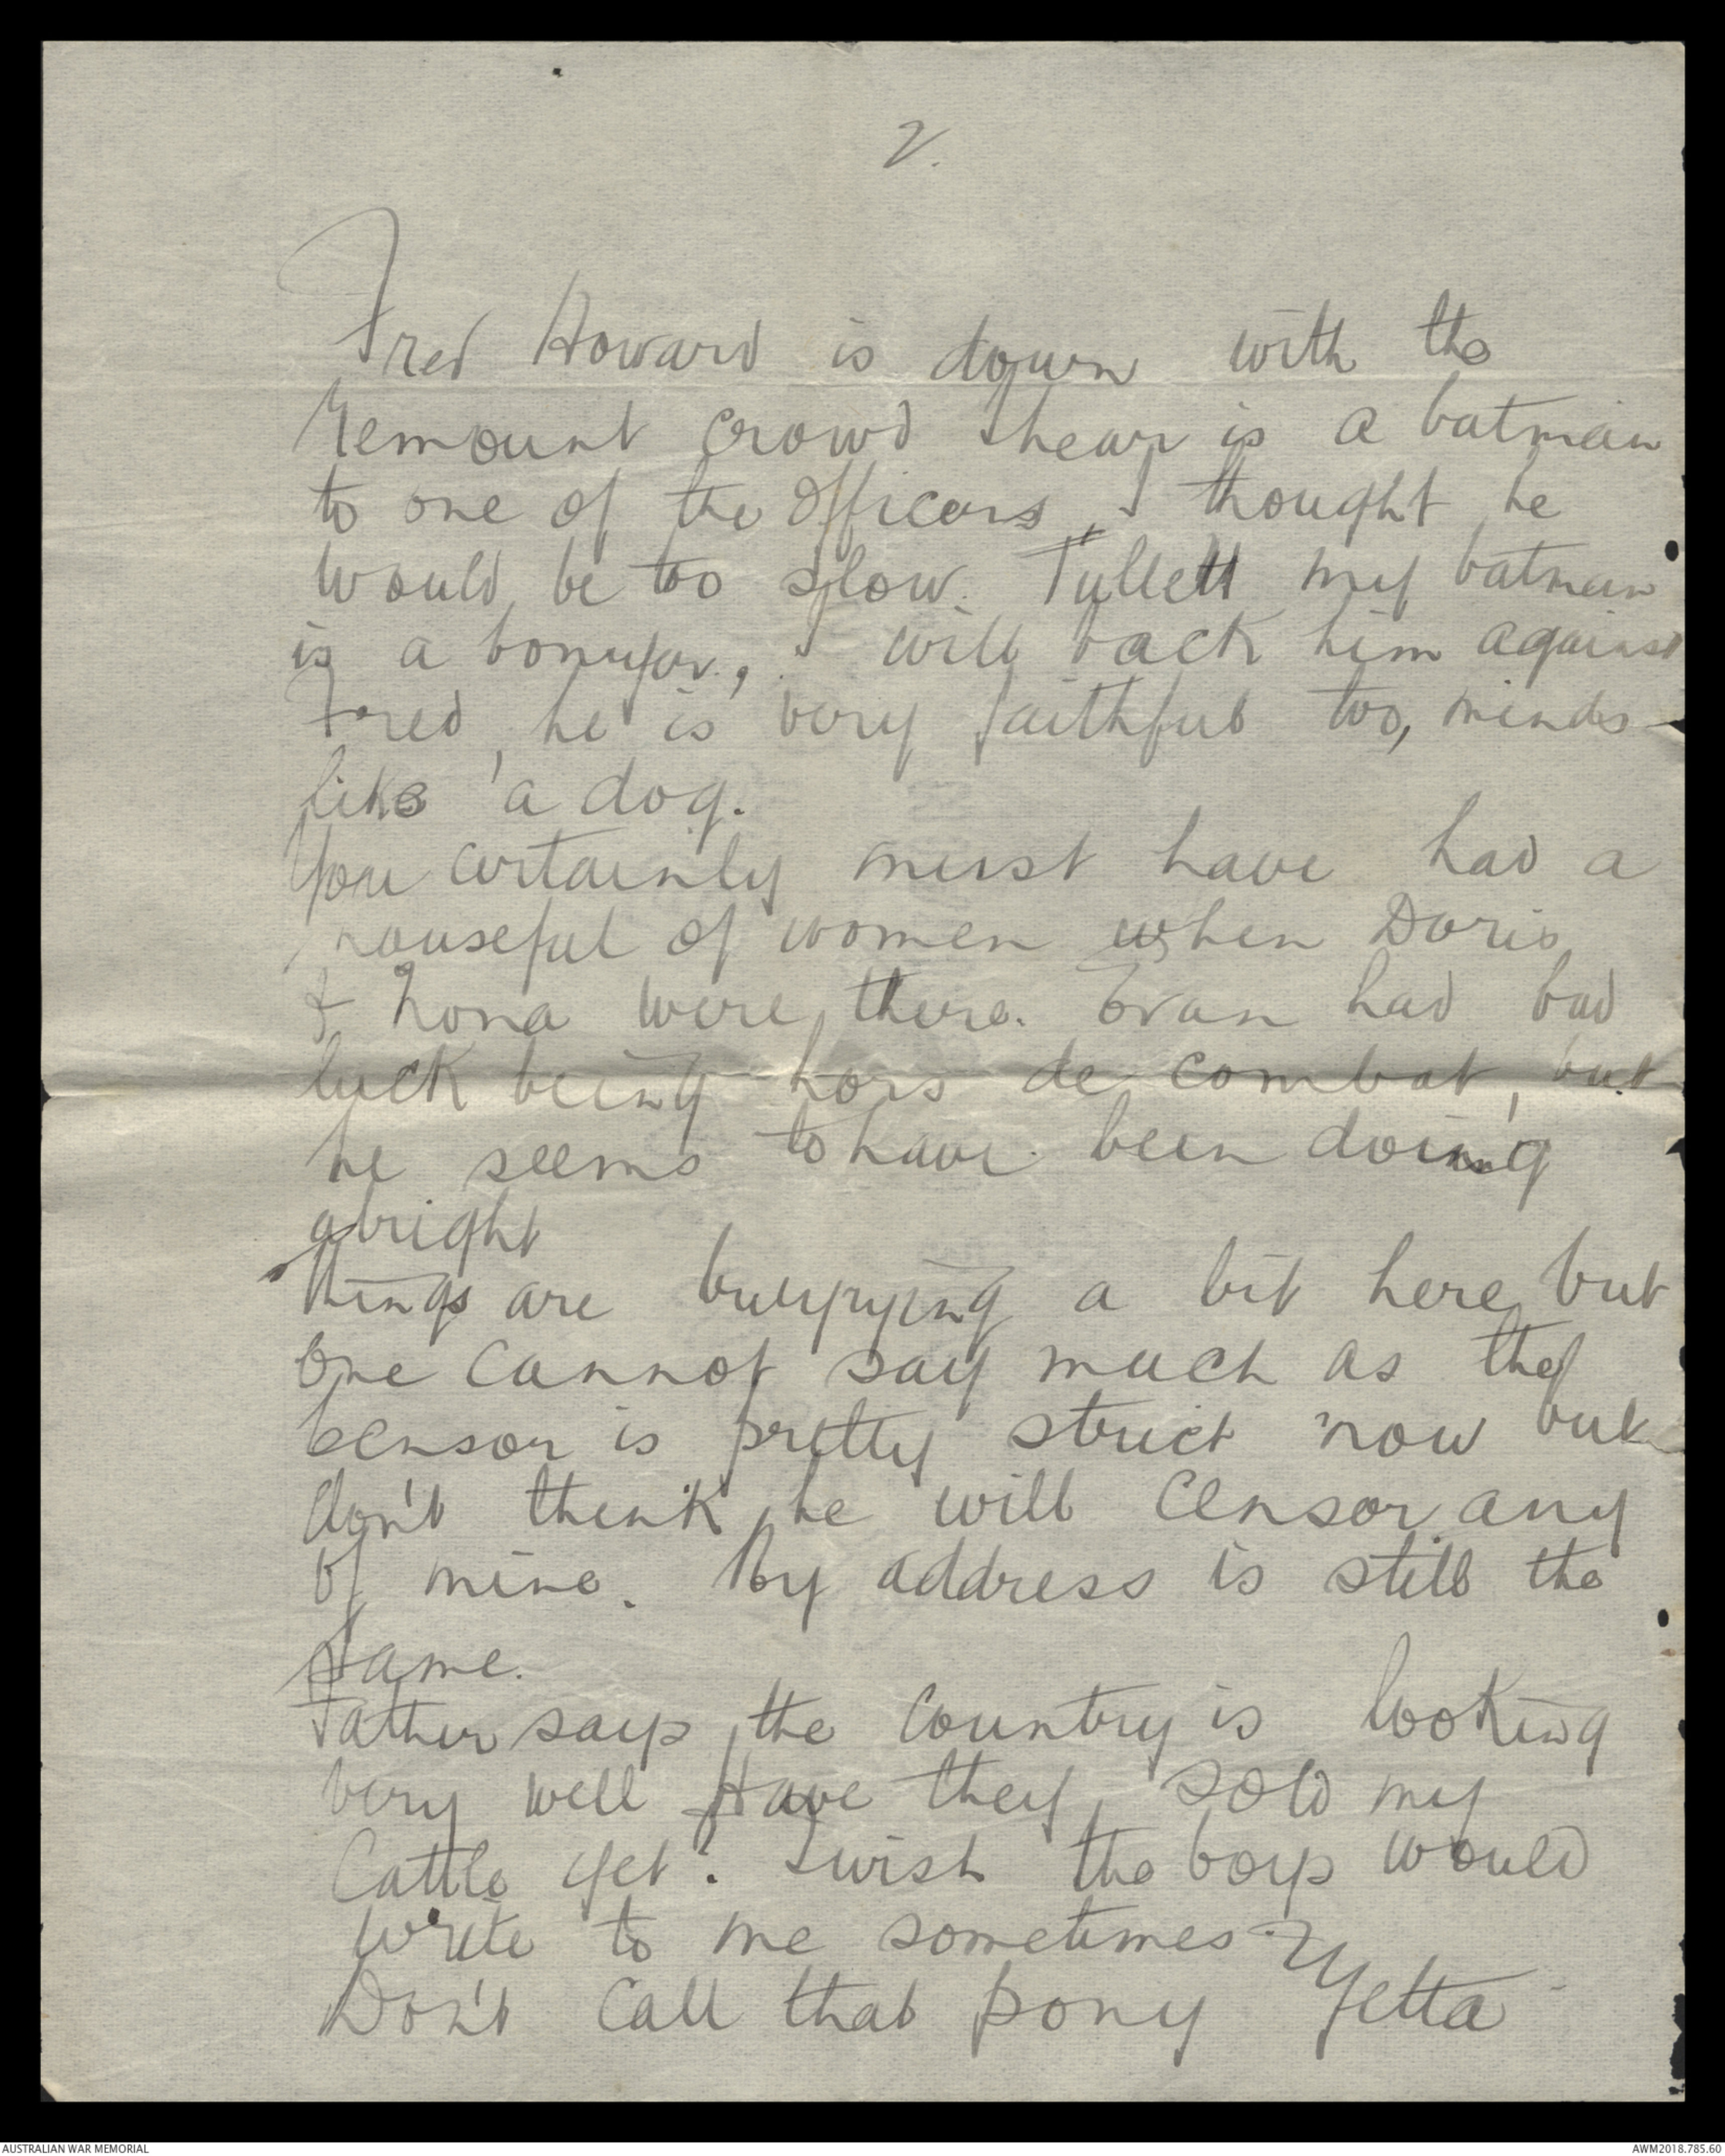 2.
Fred Howard is down with the
remount crowd I hear is a batman
to one of the Officers, I thought he
would be too slow. Tullett my batman
is a bonyar, I will back him against
Fred, he is very faithful too, minds
like a dog.
You certainly must have had a
houseful of women when Doris
& Nona were there. Evan had bad
luck being hors de combat, but
he seems to have been doing
alright
Things are burrying a bit here but
one cannot say much as the
Censor is pretty strict now but
don't think he will censor any
of mine. My address is still the
same.
Father says the country is looking
very well Have they sold my
Cattle yet? I wish the boys would
write to me sometimes
Don't call that pony Yetta
AUSTRALIAN WAR MEMORIAL
AWM2018.785.60